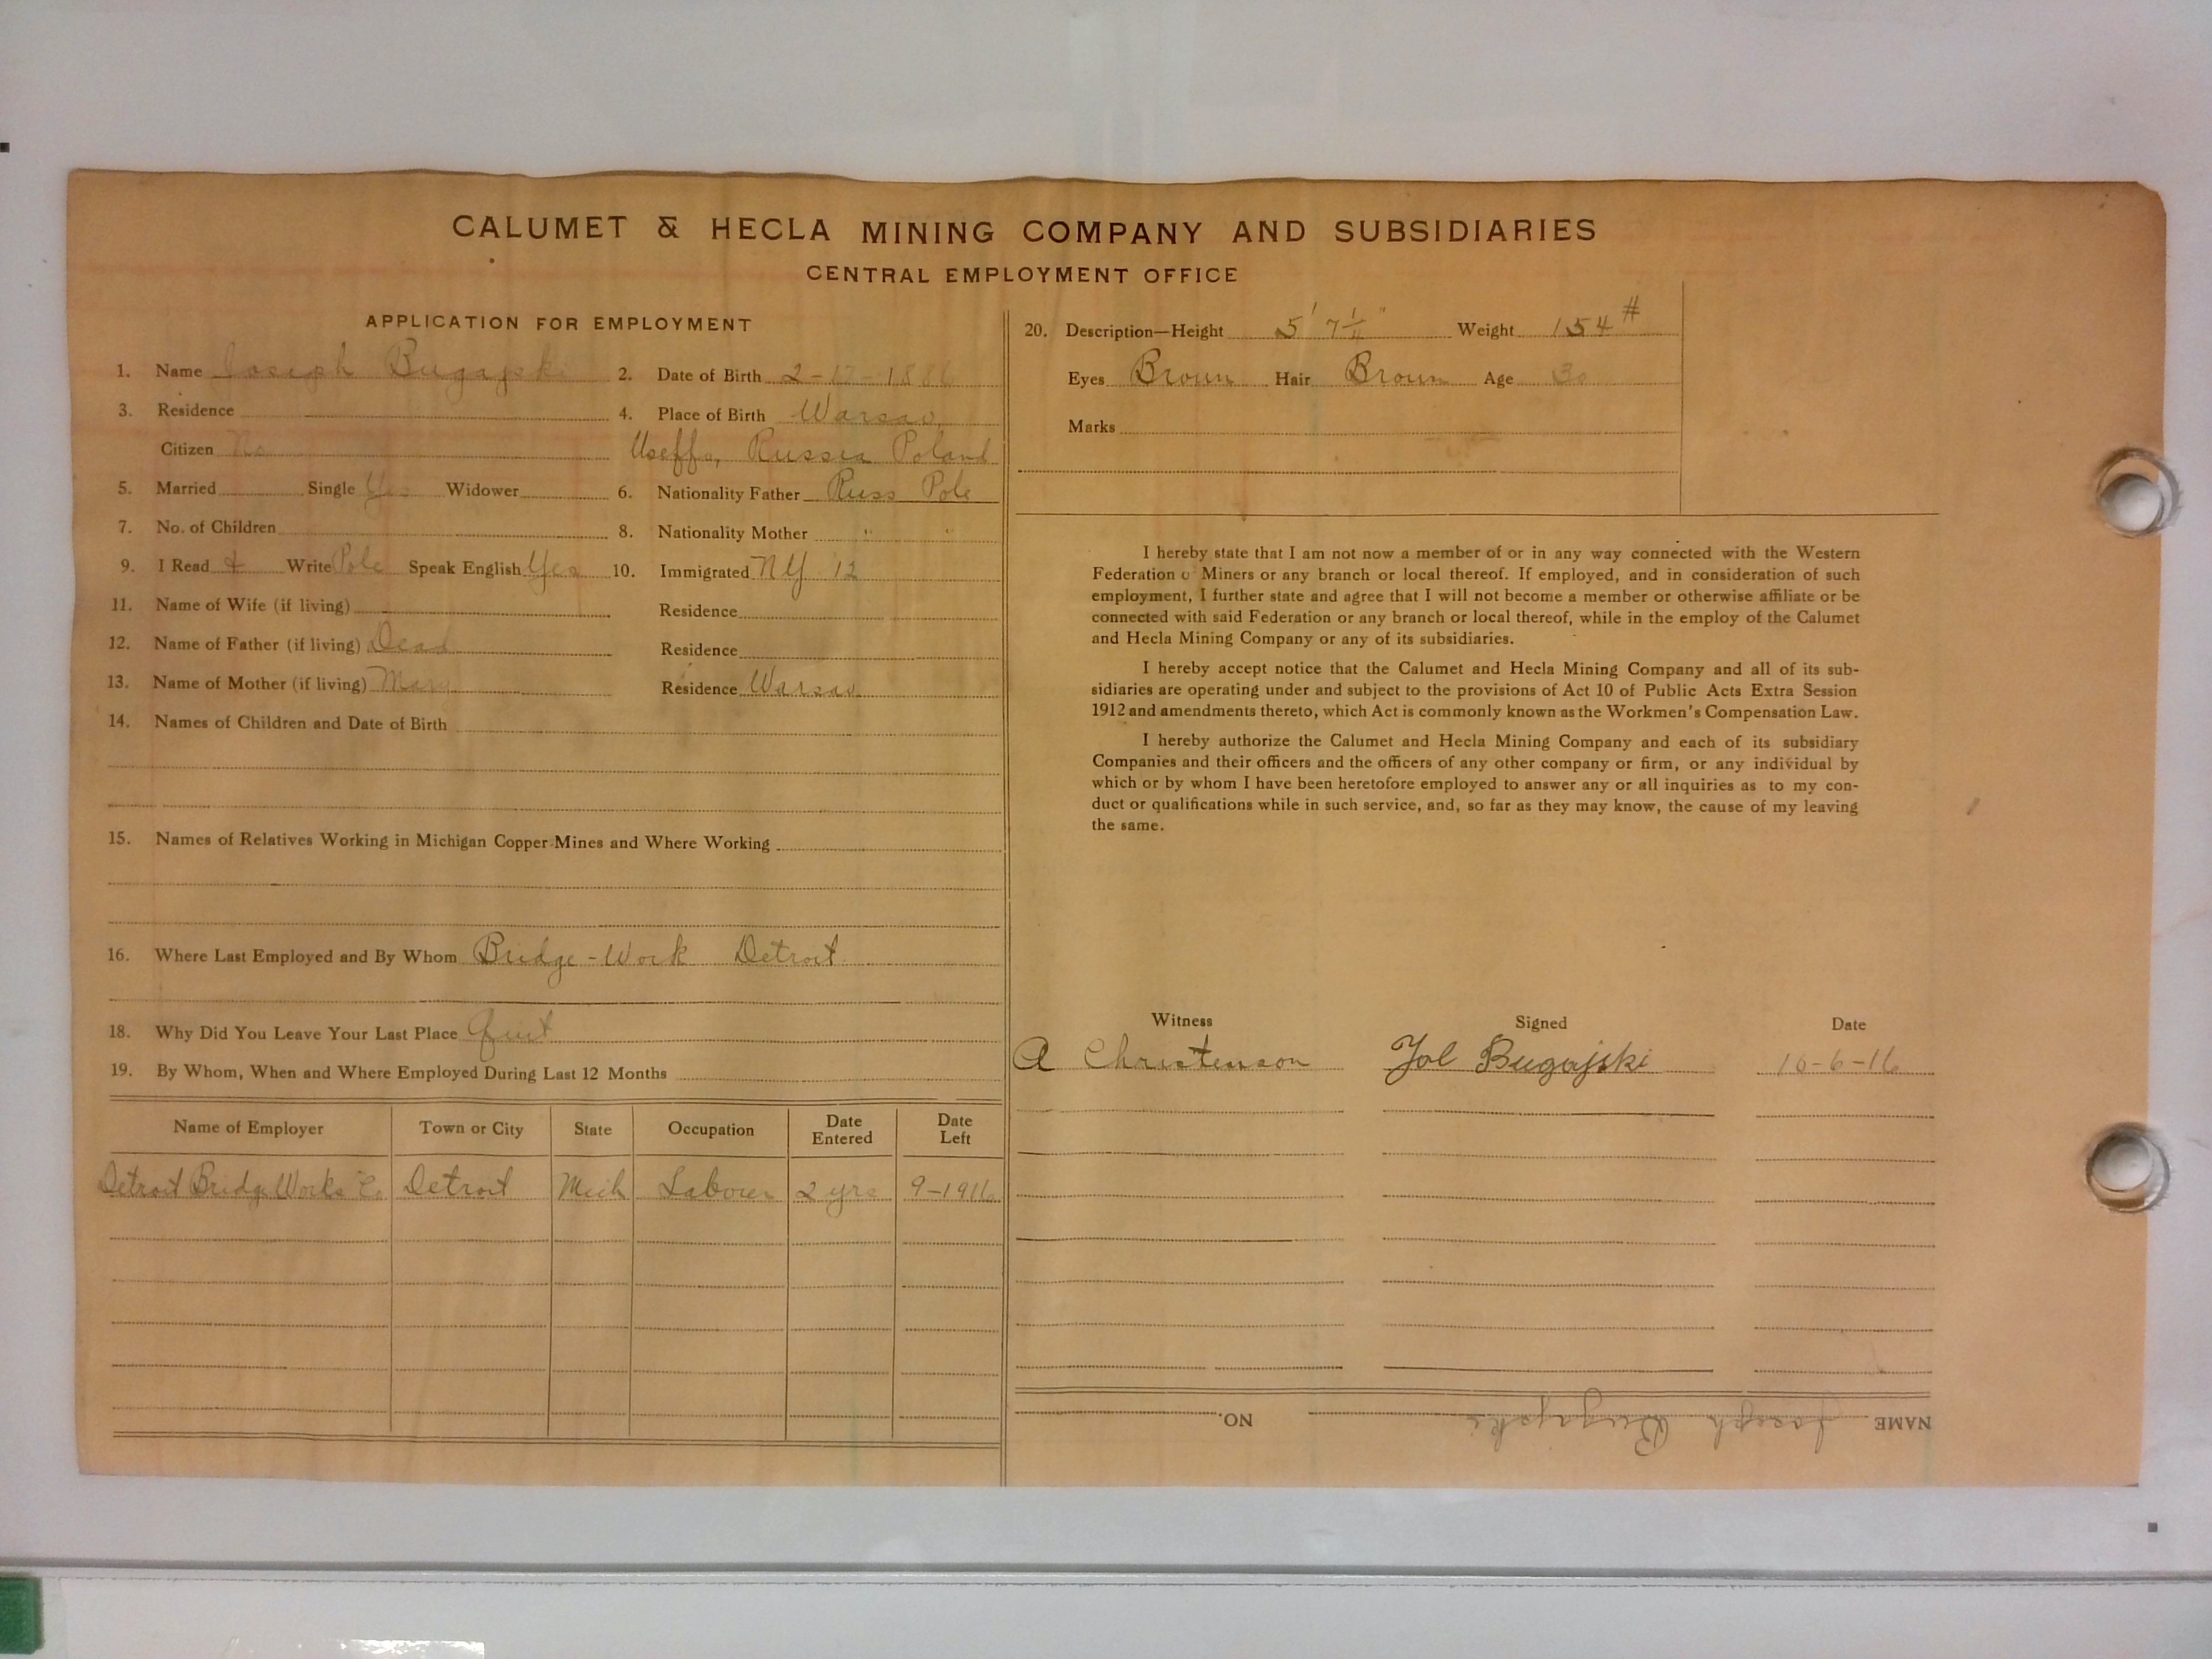 CALUMET & HECLA MINING COMPANY AND SUBSIDIARIES
CENTRAL EMPLOYMENT OFFICE
APPLICATION FOR EMPLOYMENT
1. Name Joseph Bugajski 2. Date of Birth 2-17-1886
3. Residence 4. Place of Birth Warsaw,
Citizen No Russia Poland
5. Married Single Yes Widower 6. Nationality Father Russ Pole
7. No. of Children 8. Nationality Mother " "
9. I Read & Write Pole Speak English Yes 10. Immigrated NY 12
11. Name of Wife (if living) Residence
12. Name of Father (if living) Dead Residence
13. Name of Mother (if living) Mary Residence Warsaw
14. Names of Children and Date of Birth
15. Names of Relatives Working in Michigan Copper Mines and Where Working
16. Where Last Employed and By Whom Bridge-Work Detroit
18. Why Did You Leave Your Last Place Quit
19. By Whom, When and Where Employed During Last 12 Months
Name of Employer Town or City State Occupation Date Entered Date Left
Detroit Bridge Works Co Detroit Mich Laborer 2 yrs 9-1916
20. Description—Height 5' 7½" Weight 154#
Eyes Broun Hair Broun Age 30
Marks
I hereby state that I am not now a member of or in any way connected with the Western
Federation o Miners or any branch or local thereof. If employed, and in consideration of such
employment, I further state and agree that I will not become a member or otherwise affiliate or be
connected with said Federation or any branch or local thereof, while in the employ of the Calumet
and Hecla Mining Company or any of its subsidiaries.
I hereby accept notice that the Calumet and Hecla Mining Company and all of its sub-
sidiaries are operating under and subject to the provisions of Act 10 of Public Acts Extra Session
1912 and amendments thereto, which Act is commonly known as the Workmen's Compensation Law.
I hereby authorize the Calumet and Hecla Mining Company and each of its subsidiary
Companies and their officers and the officers of any other company or firm, or any individual by
which or by whom I have been heretofore employed to answer any or all inquiries as to my con-
duct or qualifications while in such service, and, so far as they may know, the cause of my leaving
the same.
Witness Signed Date
A Christenson Jol Bugajski 10-6-16
NAME Joseph Bugajski NO.